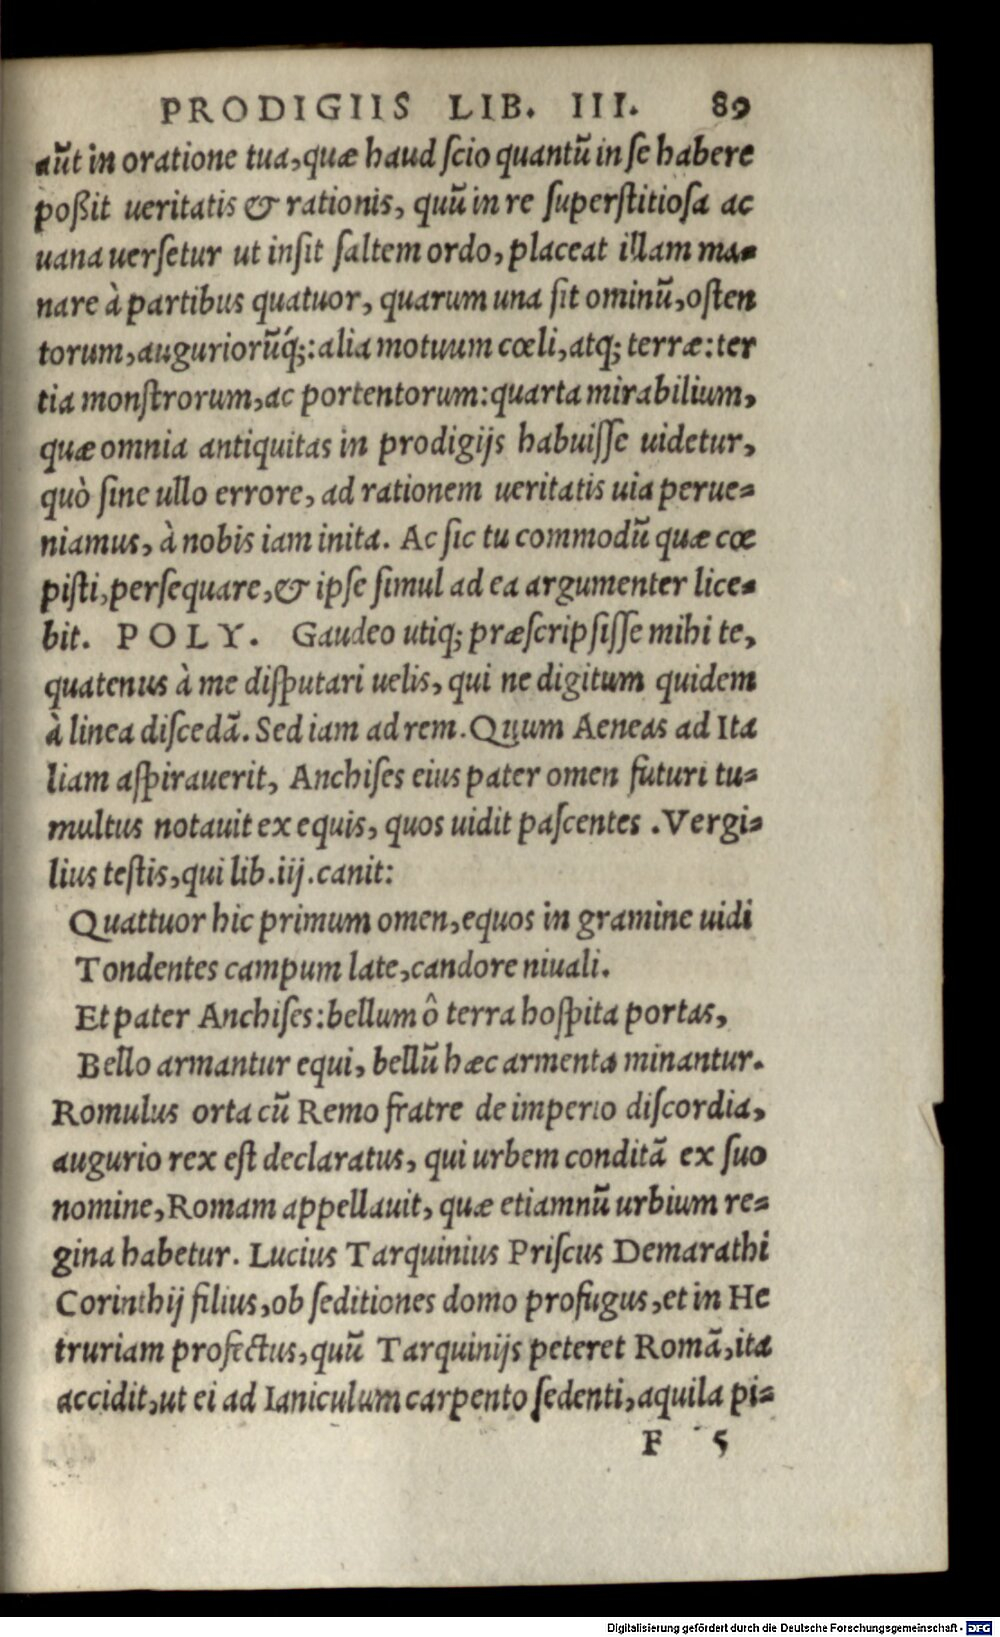 PRODIGIIS LIB. III. 89
aũt in oratione tua, quæ haud ſcio quantũ in ſe habere
poßit ueritatis & rationis, quũ in re ſuperſtitioſa ac
uana uerſetur ut inſit ſaltem ordo, placeat illam ma=
nare à partibus quatuor, quarum una ſit ominũ, oſten
torum, auguriorũq́;: alia motuum cœli, atq; terræ: ter
tia monſtrorum, ac portentorum: quarta mirabilium,
quæ omnia antiquitas in prodigijs habuiſſe uidetur,
quò ſine ullo errore, ad rationem ueritatis uia perue=
niamus, à nobis iam inita. Ac ſic tu commodũ quæ cœ
piſti, perſequare, & ipſe ſimul ad ea argumenter lice=
bit. POLY. Gaudeo utiq; præſcripſiſſe mihi te,
quatenus à me diſputari uelis, qui ne digitum quidem
à linea diſcedã. Sed iam ad rem. Quum Aeneas ad Ita
liam aſpirauerit, Anchiſes eius pater omen futuri tu=
multus notauit ex equis, quos uidit paſcentes. Vergi=
lius teſtis, qui lib. iij. canit:
Quattuor hic primum omen, equos in gramine uidi
Tondentes campum late, candore niuali.
Et pater Anchiſes: bellum ô terra hoſpita portas,
Bello armantur equi, bellũ hæc armenta minantur.
Romulus orta cũ Remo fratre de imperio diſcordia,
augurio rex eſt declaratus, qui urbem conditã ex ſuo
nomine, Romam appellauit, quæ etiamnũ urbium re=
gina habetur. Lucius Tarquinius Priſcus Demarathi
Corinthij filius, ob ſeditiones domo profugus, et in He
truriam profectus, quũ Tarquinijs peteret Romã, ita
accidit, ut ei ad Ianiculum carpento ſedenti, aquila pi=
F 5
Digitalisierung gefördert durch die Deutsche Forschungsgemeinschaft - DFG